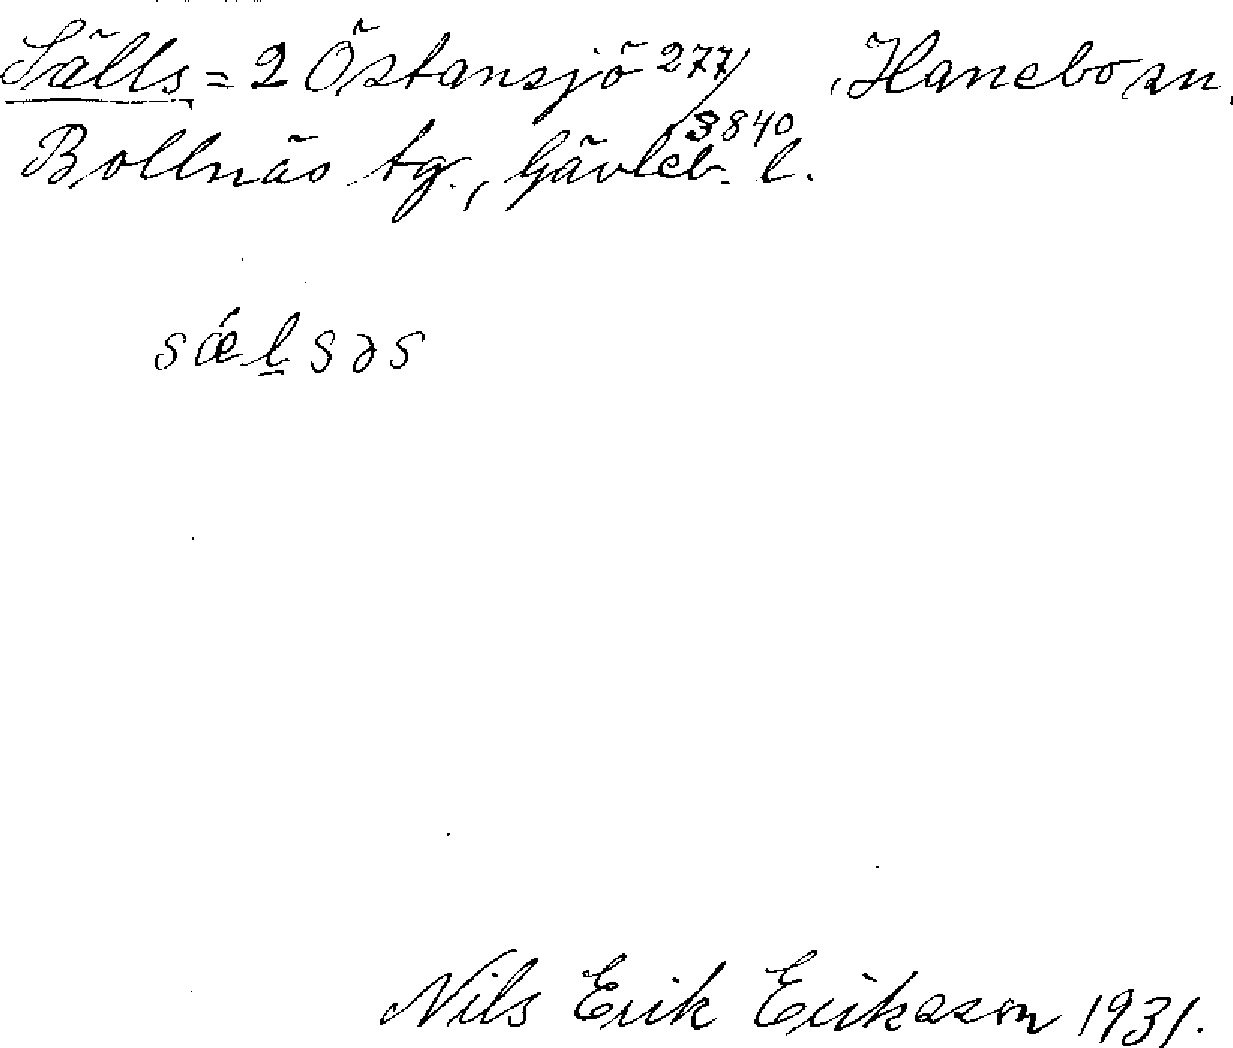 Sälls = 2 Östansjö 277/3840, Hanebo sn,
Bollnäs tg., Gävleb. l.
sǽl̲səs
Nils Erik Eriksson 1931.